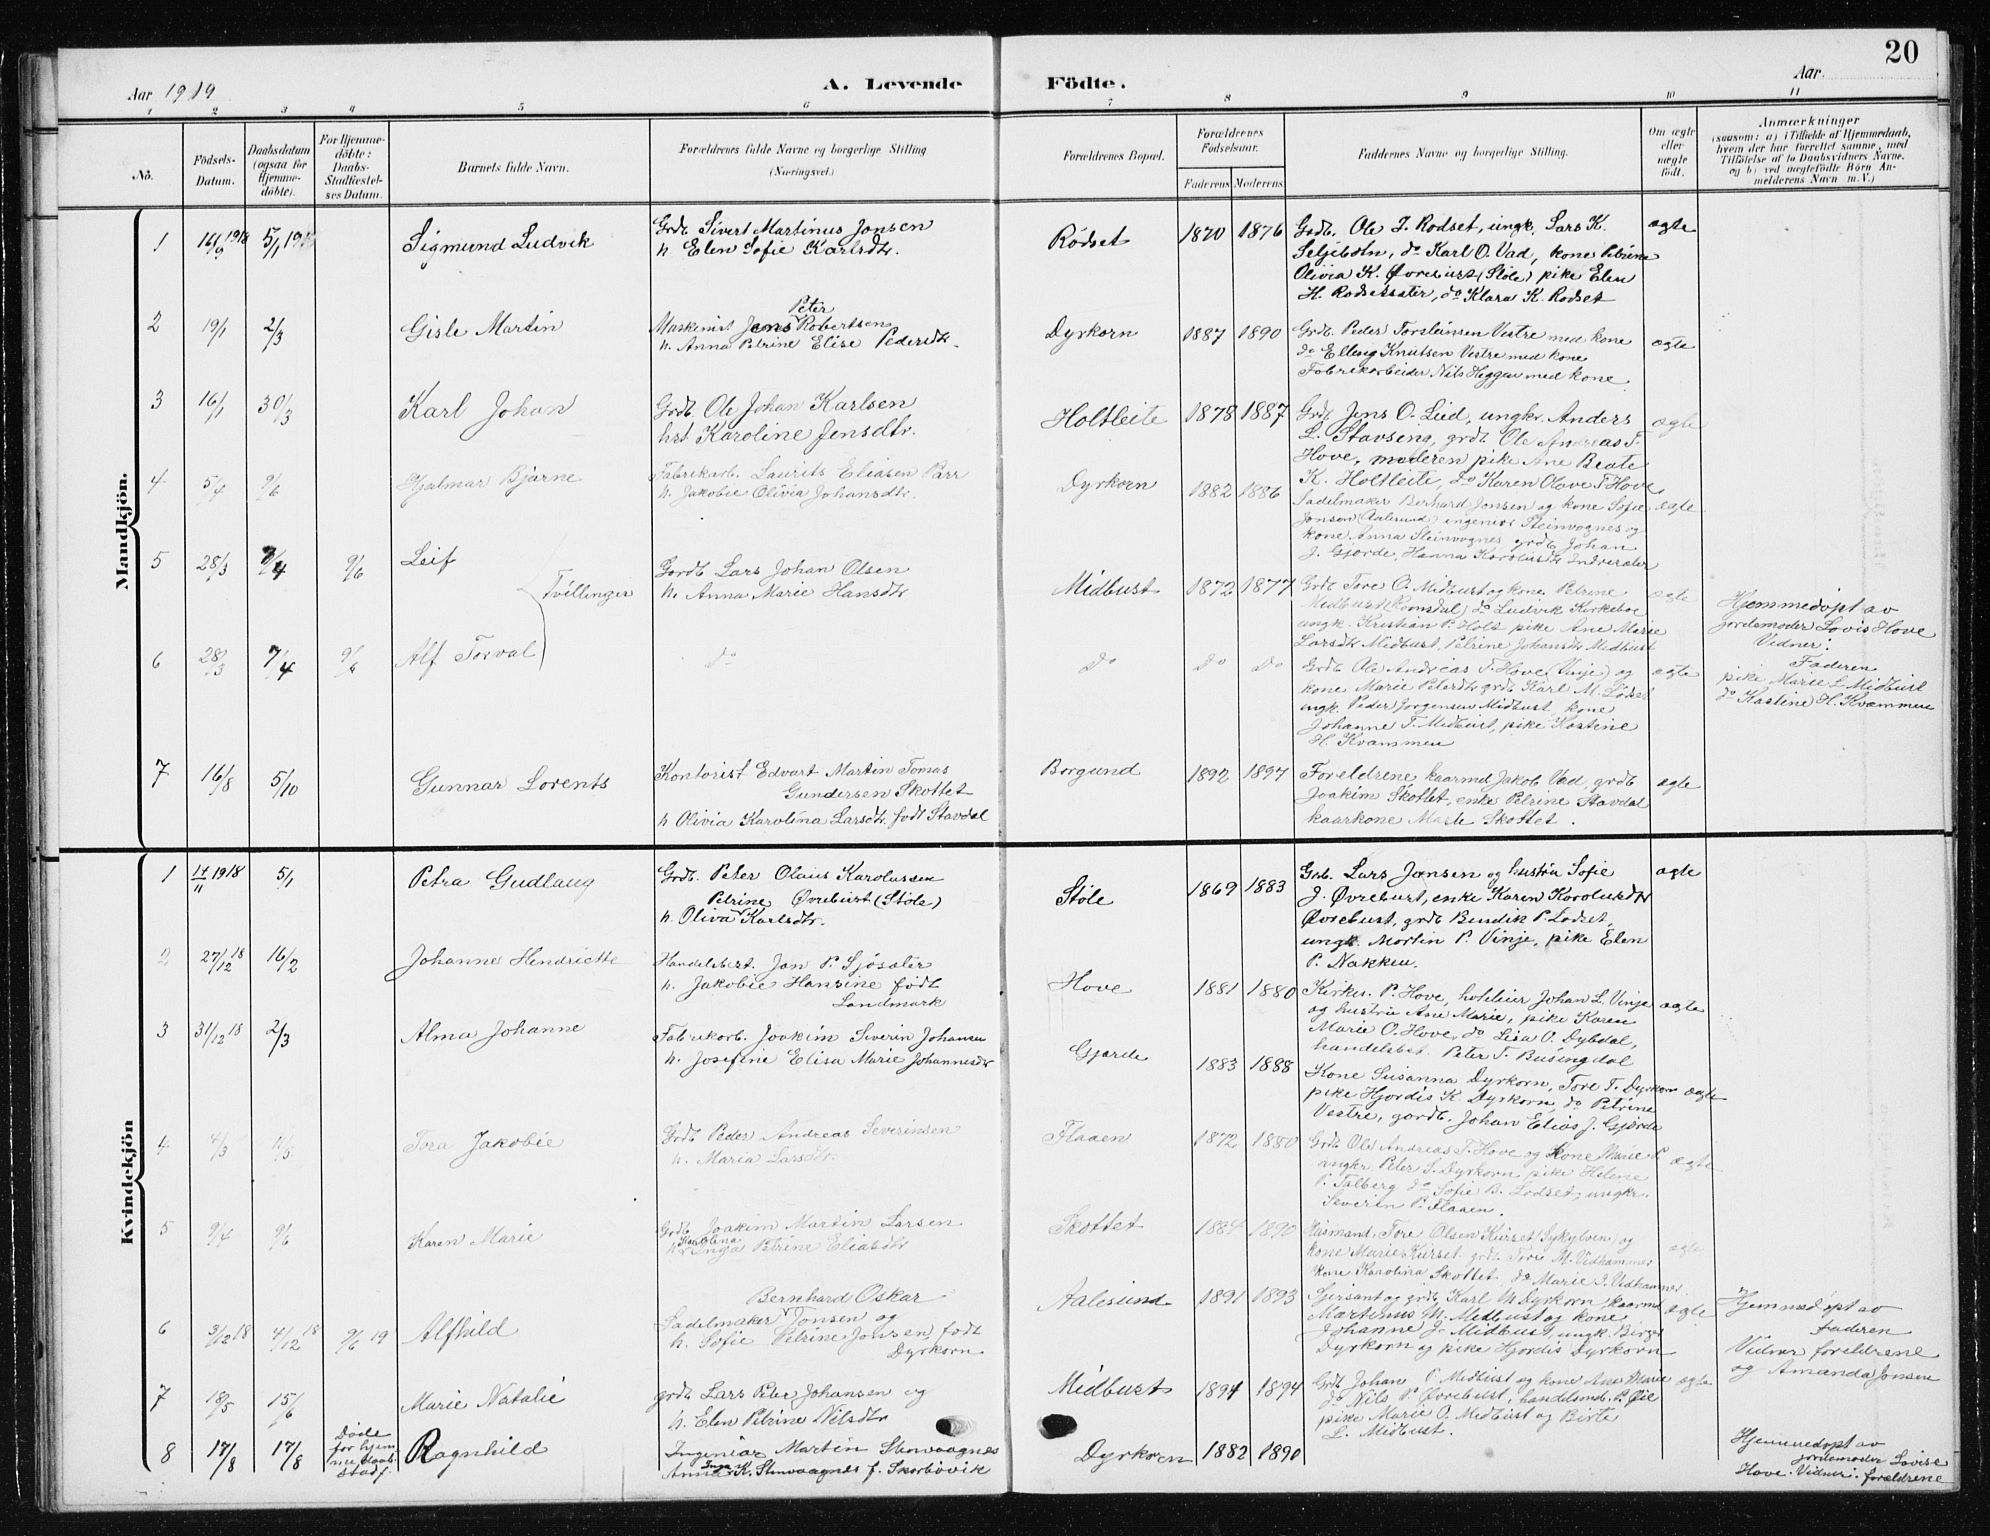 20
Aar 1919
A. Levende Födte.
Aar.
1 2 3 4 5 6 7 8 9 10 11
No.
Födsels-Datum.
Daabsdatum (ogsaa for Hjemme-döbte).
For Hjemme-döbte: Daabs-Stadfæstel-ses Datum.
Barnets fulde Navn.
Forældrenes fulde Navne og borgerlige Stilling
(Næringsvei.)
Forældrenes Bopæl.
Forældrenes Födselsaar.
Faderens Moderens
Faddernes Navne og borgerlige Stilling.
Om ægte eller uægte födt.
Anmærkninger
(saasom: a) i Tilfælde af Hjemmedaab,
hvem der har forrettet samme, med
Tilföielse af to Daabsvidners Navne.
og b) ved uægtefödte Börn An-
melderens Navn m. V.)
Mandkjön.
1 16/9 1918 5/1 19 Sigmund Ludvik
Grdb. Sivert Martinus Jonsen
h. Elen Sofie Karlsdtr.
Rödset 1870 1876
Grdb. Ole J. Rödset, ungk. Lars K.
Seljebotn, do Karl O. Vad, kone Petrine
Olivia K. Øvrebust (Støle) pike Elen
H. Rødsetsæter, do Klara K. Rødset
ægte
2 19/1 2/3 Gisle Martin
Peter
Maskinist Jens Robertsen
h. Anna Petrine Elise Pedersdtr.
Dyrkorn 1887 1890
Grdb. Peder Torsteinsen Vestre med kone
do Elling Knutsen Vestre med kone
Fabrikarbeider Nils Heggen med kone
ægte
3 16/1 30/3 Karl Johan
Grdb. Ole Johan Karlsen
hst. Karoline Jensdtr.
Holtleite 1878 1887
Grdb. Jens O. Lied, ungkr. Anders
L. Stavseng, grdb. Ole Andreas T.
Hove, moderen pike Ane Beate
K. Holtleite, do Karen Olave T. Hove
ægte
4 5/4 9/6 Hjalmar Bjarne
Fabrikarb. Laurits Eliasen Parr
h. Jakobie Olivia Johansdtr.
Dyrkorn 1882 1886
Sadelmaker Bernhard Jonsen og kone Sofie
Jonsen (Aalesund) ingeniør Steinvognes og
kone Anna Steinvognes grdb. Johan
J. Gjørde, Hanna Karolusdtr Indresæter
ægte
5 28/3 7/4 9/6 Leif
Tvillinger
Gardb. Lars Johan Olsen
h. Anna Marie Hansdtr
Midbust 1872 1877
Grdb. Tore O. Midbust og kone Petrine
Midbust (Romsdal) do Ludvik Kirkeboe
ungk. Kristian P. Holt pike Ane Marie
Larsdtr Midbust, Petrine Johansdtr Midbust
ægte
Hjemmedöpt av
jordemoder Lovis Hove
Vidner:
Faderen
pike Marie L. Midbust
do Kastine H. Kvammen
6 28/3 7/4 9/6 Alf Torval
do do do do
Grdb. Ole Andreas T. Hove (Vinje) og
kone Marie Petersdtr grdb. Karl M. Lødset
ungk. Peder Jørgensen Midbust, kone
Johanne T. Midbust, pike Kastine
H. Kvammen
ægte
7 16/8 5/10 Gunnar Lorents
Kontorist Edvart Martin Tomas
Gundersen Skottet
h. Olivia Karolina Larsdtr. født Stavdal
Borgund 1892 1897
Foreldrene kaarmd Jakob Vad, grdb
Joakim Skottet, enke Petrine Stavdal
kaarkone Marte Skottet.
ægte
Kvindekjön
1 14/11 1918 5/1 Petra Gudlaug
Grdb. Peter Olaus Karolussen
Petrine Øvrebust (Støle)
h. Oliva Karlsdtr.
Støle 1869 1883
Grb. Lars Jansen og hustru Sofie
J. Øvrebust, enke Karen Karolusdtr
Øvrebust, grdb Bendik P. Lødset,
ungk. Martin P. Vinje, pike Elen
P. Nakken.
ægte
2 27/12 18 16/2 Johanne Hendriette
Handelsbest. Jon P. Sjösæter
h. Jakobie Hansine født
Landmark
Hove 1881 1880
Kirkes. P. Hove, hoteleier Johan L. Vinje
og hustru Ane Marie, pike Karen
Marie O. Hove, do Lisa O. Dybdal,
handelsbst. Peter T. Busengdal
ægte
3 31/12 18 2/3 Alma Johanne
Fabrikarb. Joakim Severin Johansen
h. Josefine Elisa Marie Johannesdtr
Gjørde 1883 1888
Kone Susanna Dyrkorn, Tore T. Dyrkorn
pike Hjørdis K. Dyrkorn, do Petrine
Vestre, gardb. Johan Elias J. Gjørde
ægte
4 4/3 11/5 Tora Jakobie
Grdb Peder Andreas Severinsen
h. Maria Larsdtr.
Flaaen 1872 1880
Grdb Ole Andreas T. Hove og kone Marie P.
ungkr. Peter S. Dyrkorn, pike Helene
P. Talberg do Sofie B. Lødset, ungkr.
Severin P. Flaaen.
ægte
5 9/4 9/6 Karen Marie
Grdb. Joakim Martin Larsen
Karolina
h. Inga Petrine Eliasdtr
Skottet 1884 1890
Husmand Tore Olsen Kurset (Sykylven) og
kone Marie Kurset grdb. Tore M. Vidhammer
kone Karolina Skottet, do Marie I. Vidhammer
ægte
6 3/12 18 4/12 18 9/6 19 Alfhild
Bernhard Oskar
Sadelmaker Jonsen og
h. Sofie Petrine Jonsen, født
Dyrkorn
Aalesund 1891 1893
Sersant og grdb. Karl M Dyrkorn, kaarmd
Martinus M. Midbust og kone
Johanne J. Midbust, ungk. Birger
Dyrkorn og pike Hjørdis Dyrkorn
ægte
Hjemmedöpt av
faderen
Vidner foreldrene
og Amanda Jonsen
7 18/5 15/6 Marie Natalie
grdb Lars Peter Johansen og
h. Elen Petrine Nilsdtr
Midbust 1894 1894
Grdb Johan P. Midbust og kone Ane Marie
do Nils P. Øvrebust, handelsmd. P. Øie
pike Marie O. Midbust og Birte
L. Midbust.
ægte
8 17/8 17/8
Døde
før hjem-
medaabs
stadf.
Ragnhild
Ingeniør Martin Stenvaagnes
Inga
Anna K. Stenvaagnes f. Skorbövik
Dyrkorn 1882 1890
Hjemmedöpt av
jordemoder Lovise
Hove. Vidner: foreldrene